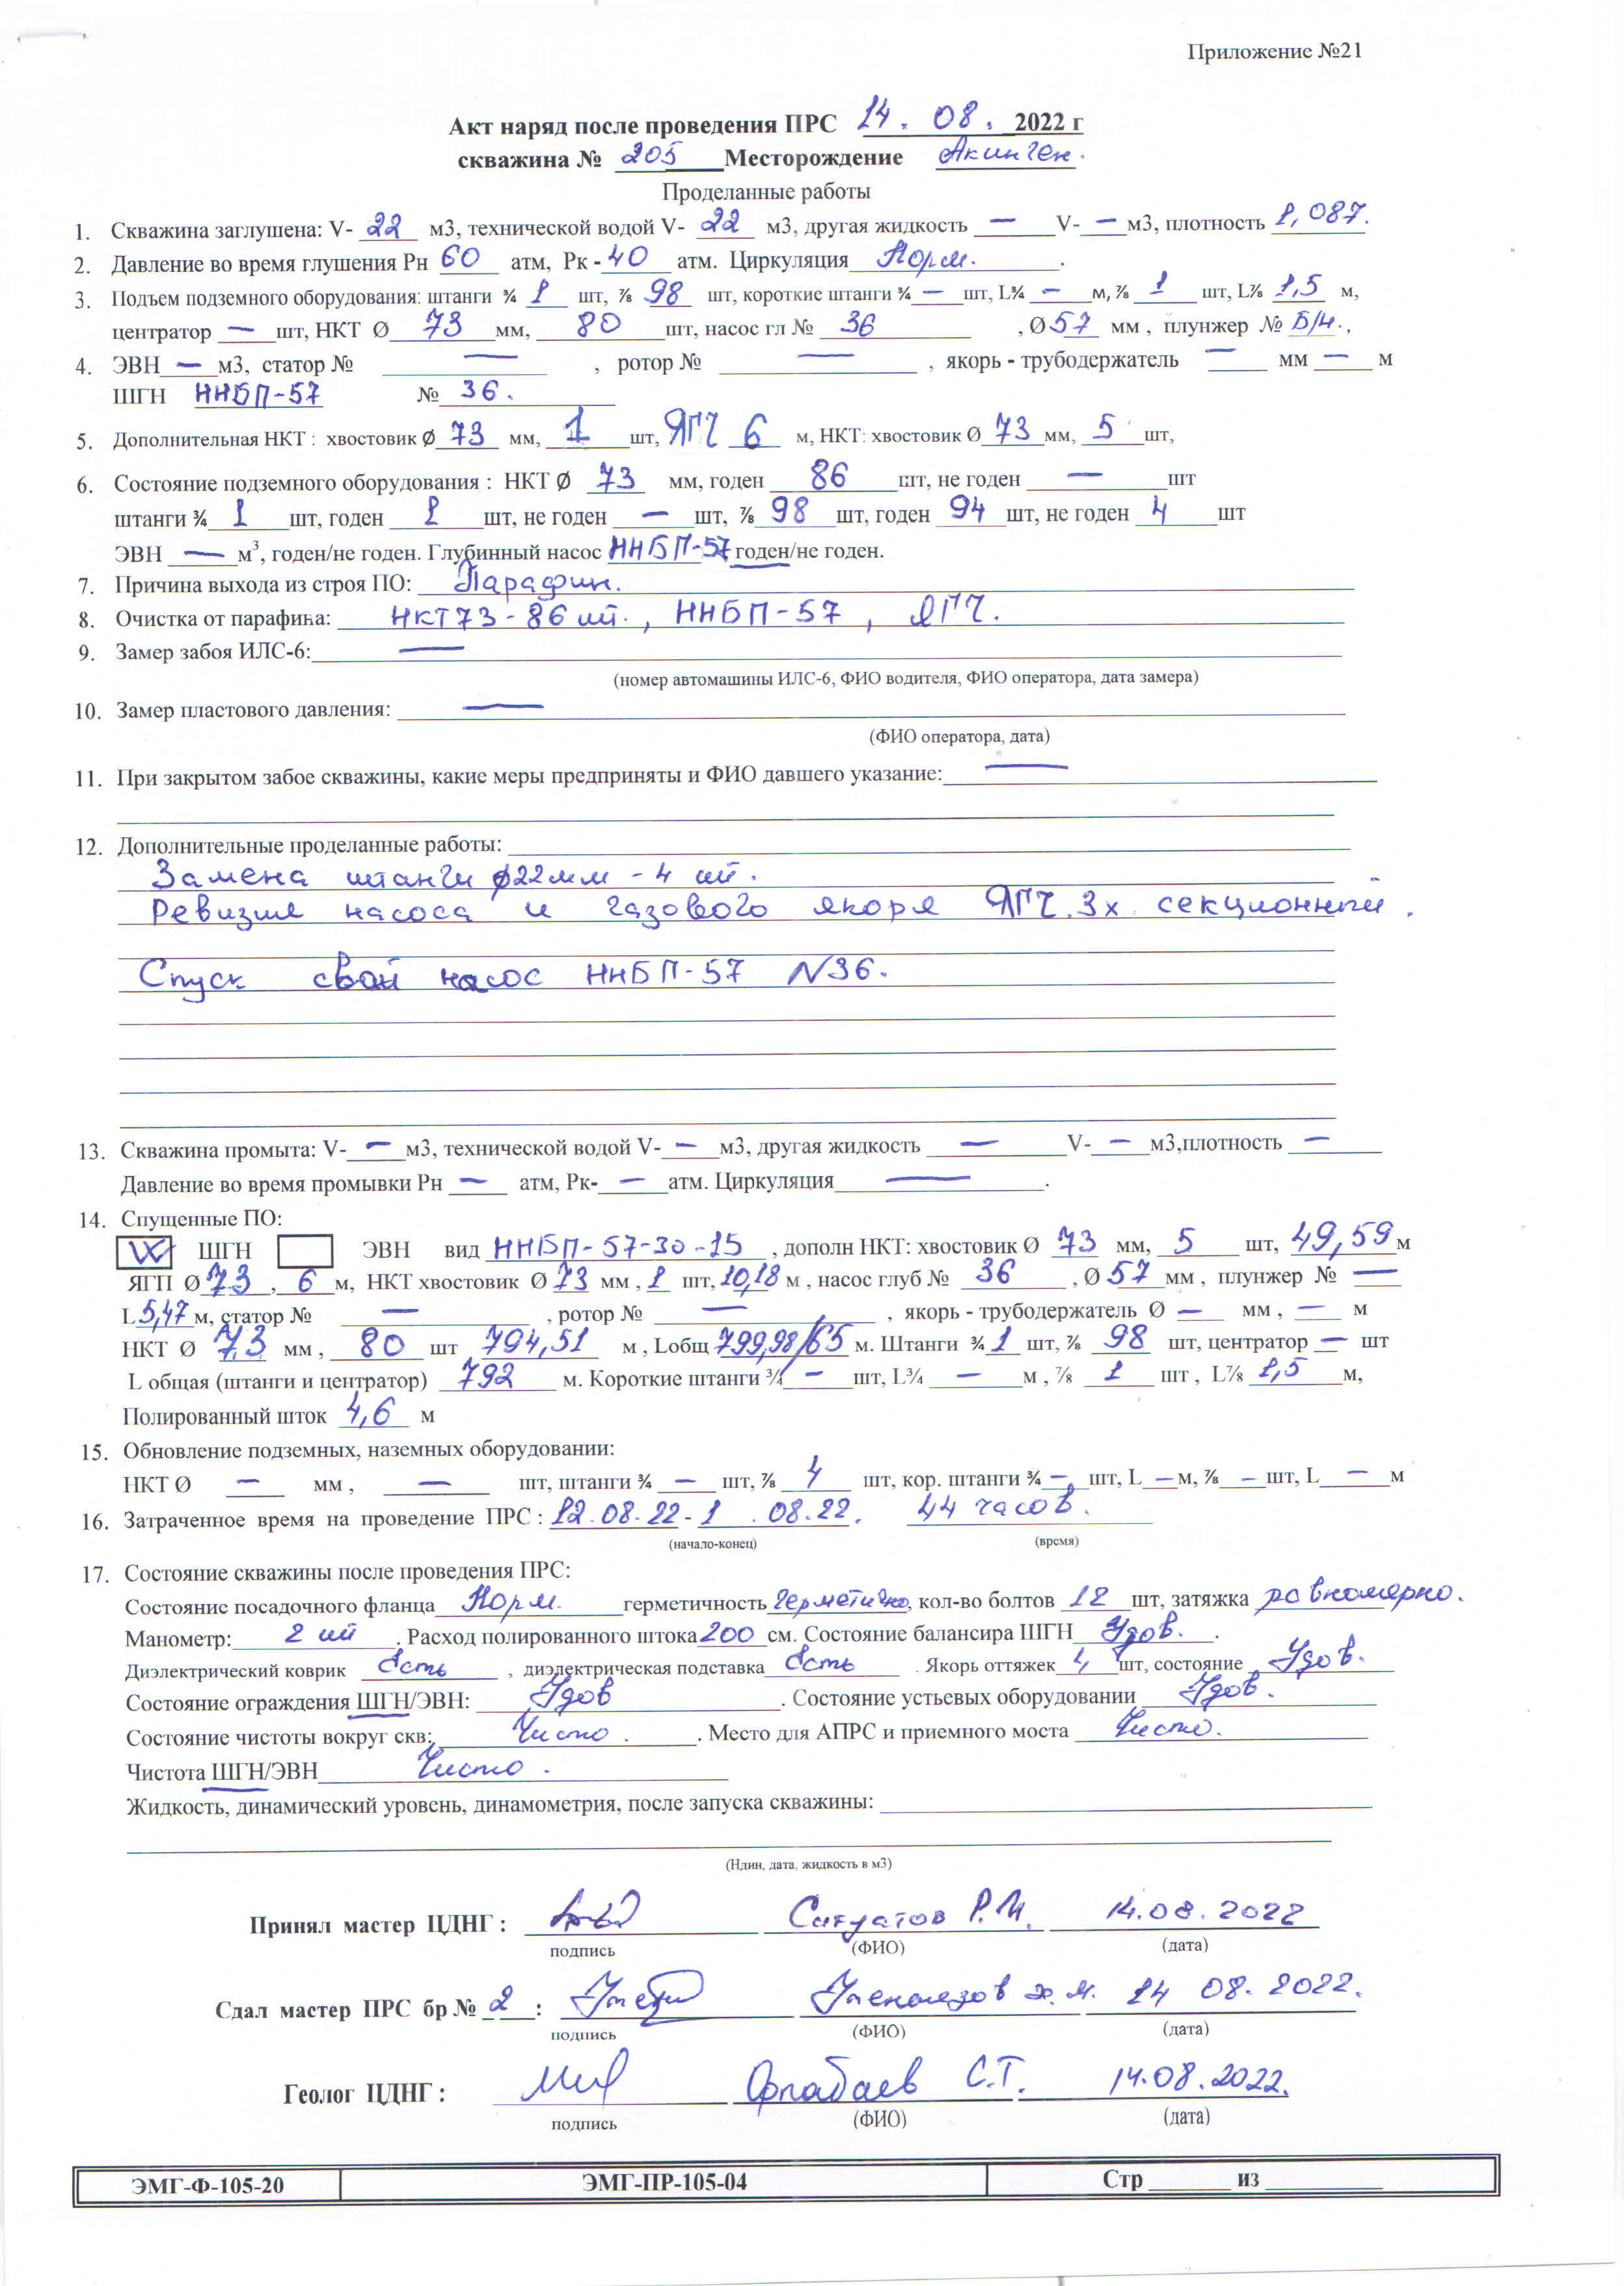 Приложение №21
Акт наряд после проведения ПРС 14. 08. 2022 г
скважина № 205 Месторождение Акинген.
Проделанные работы
1. Скважина заглушена: V- 22 м3, технической водой V- 22 м3, другая жидкость — V- — м3, плотность 1,087.
2. Давление во время глушения Рн 60 атм, Рк - 40 атм. Циркуляция Норм.
3. Подъем подземного оборудования: штанги ¾ 1 шт, ⅞ 98 шт, короткие штанги ¾ — шт, L¾ — м, ⅞ 1 шт, L⅞ 1,5 м,
центратор — шт, НКТ Ø 73 мм, 80 шт, насос гл № 36 , Ø 57 мм , плунжер № Б/Н. ,
4. ЭВН — м3, статор № — , ротор № — , якорь - трубодержатель — мм — м
ШГН ННБП-57 № 36.
5. Дополнительная НКТ : хвостовик Ø 73 мм, 1 шт, ЯГЧ 6 м, НКТ: хвостовик Ø 73 мм, 5 шт,
6. Состояние подземного оборудования : НКТ Ø 73 мм, годен 86 шт, не годен — шт
штанги ¾ 1 шт, годен 1 шт, не годен — шт, ⅞ 98 шт, годен 94 шт, не годен 4 шт
ЭВН — м³, годен/не годен. Глубинный насос ННБП-57 годен/не годен.
7. Причина выхода из строя ПО: Парафин.
8. Очистка от парафина: НКТ73-86 шт., ННБП-57, ЯГЧ.
9. Замер забоя ИЛС-6: —
(номер автомашины ИЛС-6, ФИО водителя, ФИО оператора, дата замера)
10. Замер пластового давления: —
(ФИО оператора, дата)
11. При закрытом забое скважины, какие меры предприняты и ФИО давшего указание: —
12. Дополнительные проделанные работы:
Замена штанги ø22мм - 4 шт.
Ревизия насоса и газового якоря ЯГЧ.3х секционный.
Спуск свой насос ННБП-57 N36.
13. Скважина промыта: V- — м3, технической водой V- — м3, другая жидкость — V- — м3,плотность —
Давление во время промывки Рн — атм, Рк- — атм. Циркуляция — .
14. Спущенные ПО:
ШГН ЭВН вид ННБП-57-30-15 , дополн НКТ: хвостовик Ø 73 мм, 5 шт, 49,59 м
ЯГП Ø 73 , 6 м, НКТ хвостовик Ø 73 мм , 1 шт, 10,18 м , насос глуб № 36 , Ø 57 мм , плунжер № —
L 5,47 м, статор № — , ротор № — , якорь - трубодержатель Ø — мм , — м
НКТ Ø 73 мм , 80 шт 794,51 м , Lобщ 799,98/65 м. Штанги ¾ 1 шт, ⅞ 98 шт, центратор — шт
L общая (штанги и центратор) 792 м. Короткие штанги ¾ — шт, L¾ — м , ⅞ 1 шт , L⅞ 1,5 м,
Полированный шток 4,6 м
15. Обновление подземных, наземных оборудовании:
НКТ Ø — мм , — шт, штанги ¾ — шт, ⅞ 4 шт, кор. штанги ¾ — шт, L — м, ⅞ — шт, L — м
16. Затраченное время на проведение ПРС : 12.08.22 - 1 .08.22. 44 часов.
(начало-конец) (время)
17. Состояние скважины после проведения ПРС:
Состояние посадочного фланца Норм. герметичность герметично, кол-во болтов 12 шт, затяжка равномерно.
Манометр: 2 шт . Расход полированного штока 200 см. Состояние балансира ШГН Удов. .
Диэлектрический коврик Есть , диэлектрическая подставка Есть . Якорь оттяжек 4 шт, состояние Удов.
Состояние ограждения ШГН/ЭВН: Удов . Состояние устьевых оборудовании Удов.
Состояние чистоты вокруг скв: Чисто . . Место для АПРС и приемного моста Чисто.
Чистота ШГН/ЭВН Чисто .
Жидкость, динамический уровень, динамометрия, после запуска скважины:
(Ндин, дата, жидкость в м3)
Принял мастер ЦДНГ : Р.И. 14.08.2022
подпись (ФИО) (дата)
Сдал мастер ПРС бр № 2 : 14 08. 2022.
подпись (ФИО) (дата)
Геолог ЦДНГ : С.Т. 14.08.2022.
подпись (ФИО) (дата)
ЭМГ-Ф-105-20 ЭМГ-ПР-105-04 Стр из